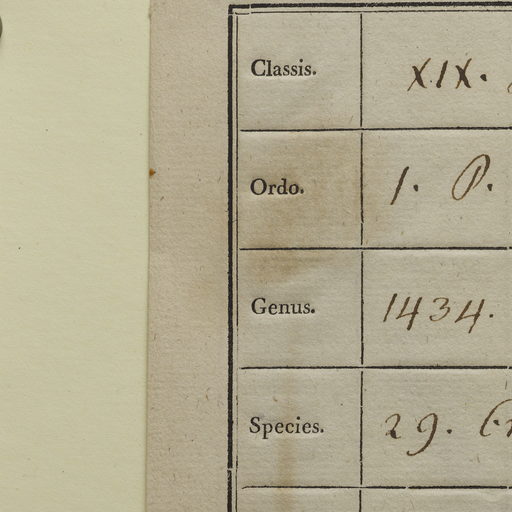 Classis. XIX.
Ordo. 1. P.
Genus. 1434.
Species. 29.